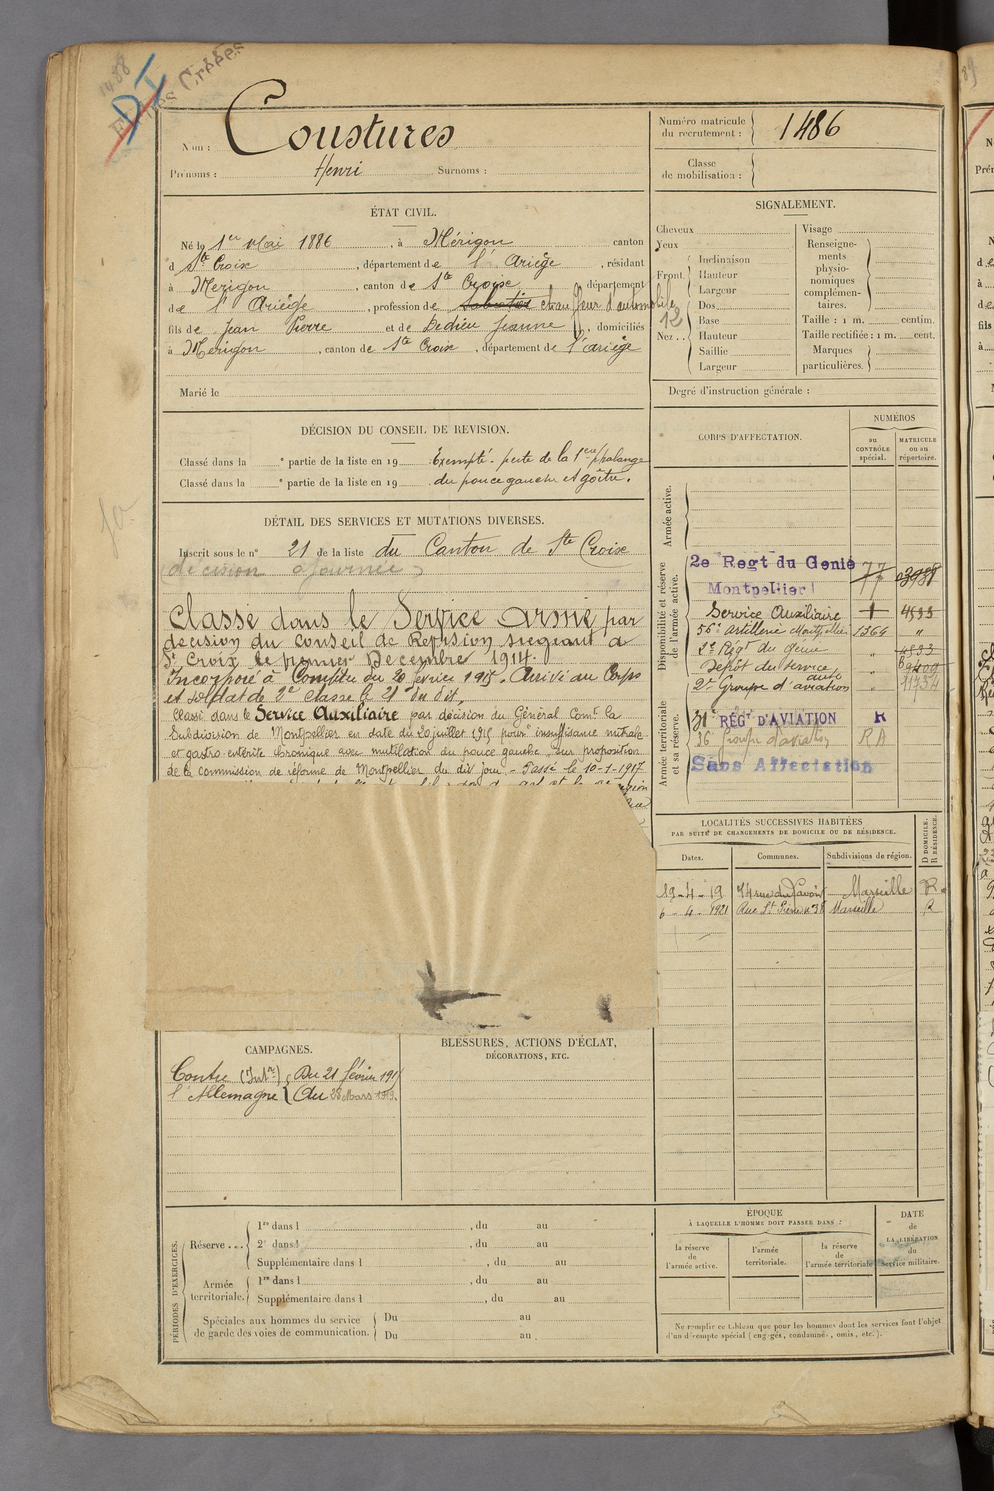 1488
D I
Crêées
Nom : Coustures
Prénoms : Henri Surnoms :
Numéro matricule du recrutement : 1486
Classe de mobilisation :
ÉTAT CIVIL.
Né le 1er Mai 1886, à Mérigon canton
d Ste Croix, département de l'Ariège, résidant
à Mérigon, canton de Ste Croix, département
de l'Ariège, profession de chauffeur d'automobile
fils de Jean Pierre et de Dedieu Jeanne, domiciliés
à Mérigon, canton de Ste Croix, département de l'ariège
Marié le
SIGNALEMENT.
Cheveux
Yeux
Front. Inclinaison
Hauteur
Largeur
Nez .. Dos
Base
Hauteur
Saillie
Largeur
12
Visage
Renseignements physionomiques complémentaires.
Taille : 1 m. centim.
Taille rectifiée : 1 m. cent.
Marques particulières.
Degré d'instruction générale :
DÉCISION DU CONSEIL DE REVISION.
Classé dans la e partie de la liste en 19 Exempté - perte de la 1ère phalange
Classé dans la e partie de la liste en 19 du pouce gauche et goître.
DÉTAIL DES SERVICES ET MUTATIONS DIVERSES.
Inscrit sous le n° 21 de la liste du Canton de Ste Croix
décision ajournée
Classé dans le Service armé par
décision du Conseil de Révision siégeant à
St Croix le premier Décembre 1914.
Incorporé à Compter du 20 février 1915. Arrivé au Corps
et soldat de 2e classe le 21 du dit.
Classé dans le Service Auxiliaire par décision du Général Comt la
Subdivision de Montpellier en date du 20 juillet 1915 pour insuffisance mitrale
et gastro entérite chronique avec mutilation du pouce gauche, sur proposition
de la commission de réforme de Montpellier du dit jour. - Passé le 10-1-1917
CORPS D'AFFECTATION.
NUMÉROS
au CONTRÔLE spécial.
MATRICULE ou au répertoire.
Armée active.
Disponibilité et réserve de l'armée active.
2e Regt du Genie 77
Montpellier
Service Auxiliaire 1 4833
56e artillerie Montpellier 1364 "
2e Régt du génie " 4833
Dépôt du service auto
2e Groupe d'aviation " 11754
Armée territoriale et sa réserve.
31e RÉGt D'AVIATION R
36 Groupe d'aviation R A
Sans Affectation
LOCALITÉS SUCCESSIVES HABITÉES
PAR SUITE DE CHANGEMENTS DE DOMICILE OU DE RÉSIDENCE.
Dates. Communes. Subdivisions de région. D DOMICILE. R RÉSIDENCE.
19-4-19 74 rue du Marseille R.
6-4-1921 Rue St Pierre n° 38 Marseille R
CAMPAGNES.
Contre (Intr) Du 21 février 1915
l'Allemagne Au 28 Mars 1919.
BLESSURES, ACTIONS D'ÉCLAT,
DÉCORATIONS, ETC.
PÉRIODES D'EXERCICES.
Réserve ...
1re dans l , du au
2e dans l , du au
Supplémentaire dans l , du au
Armée territoriale.
1re dans l , du au
Supplémentaire dans l , du au
Spéciales aux hommes du service de garde des voies de communication.
Du au
Du au
ÉPOQUE
À LAQUELLE L'HOMME DOIT PASSER DANS :
la réserve de l'armée active.
l'armée territoriale.
la réserve de l'armée territoriale
DATE de LA LIBÉRATION du service militaire.
Ne remplir ce tableau que pour les hommes dont les services font l'objet
d'un décompte spécial (engagés, condamnés, omis, etc.).